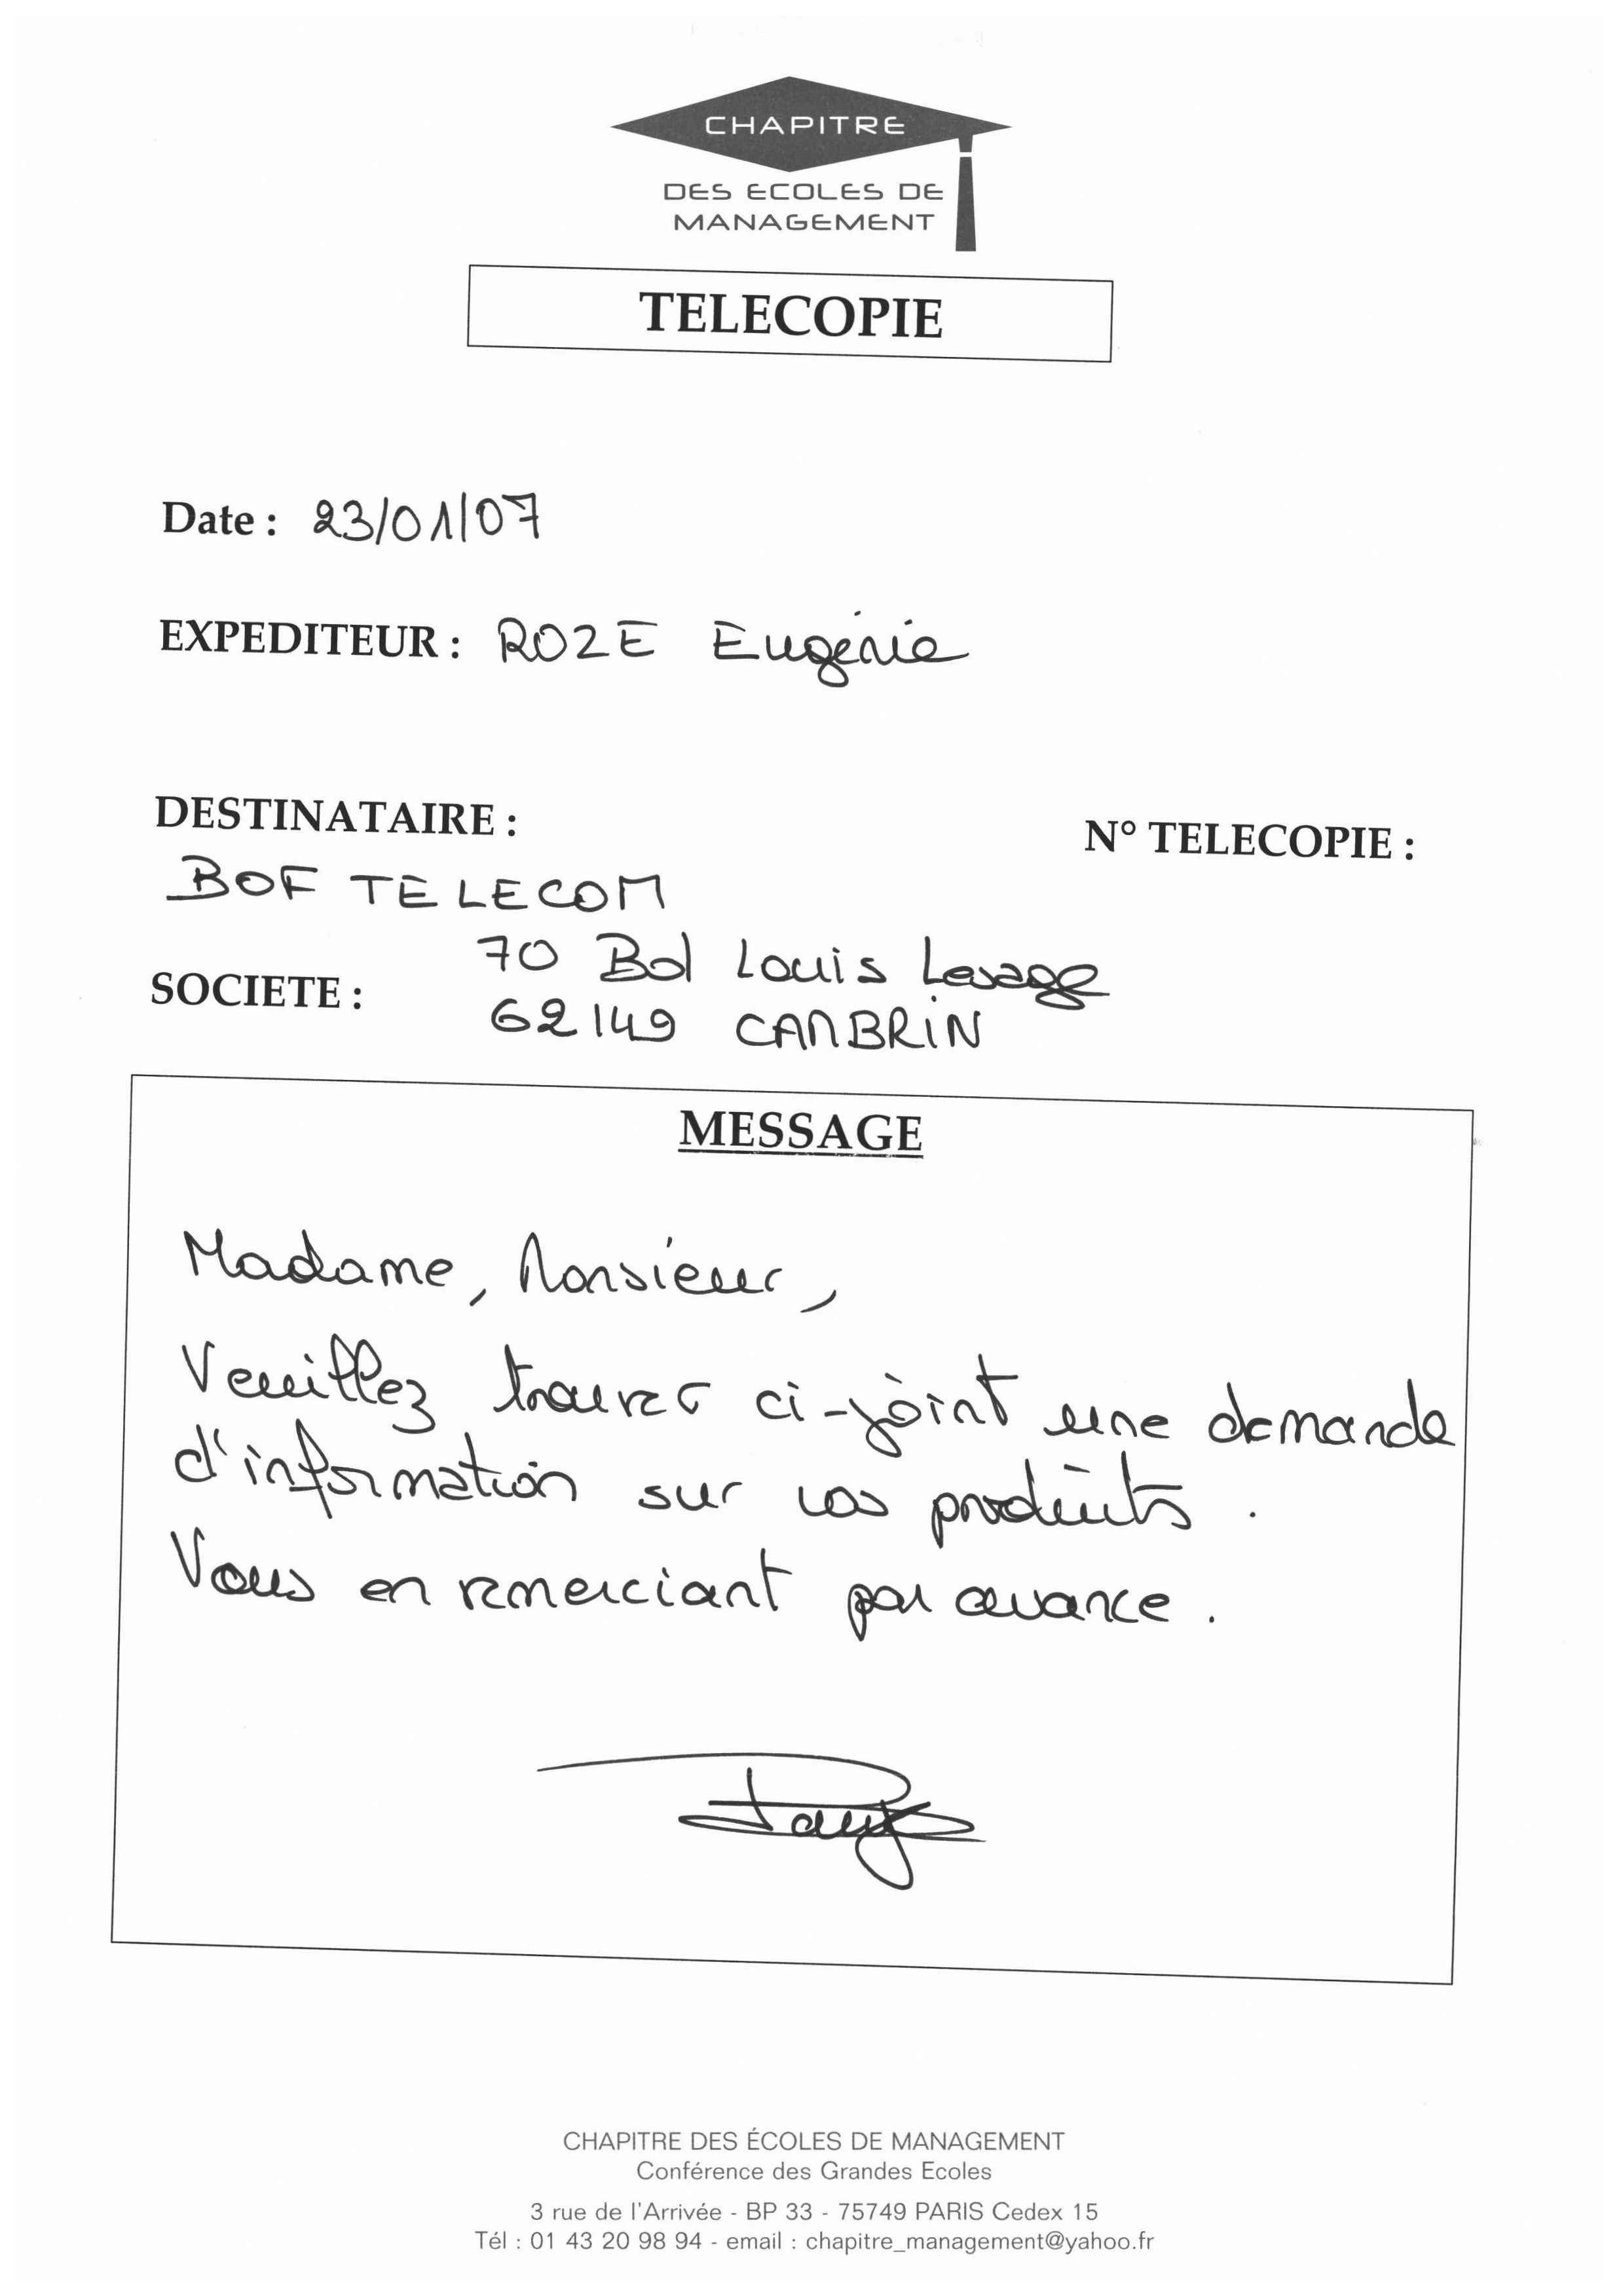 CHAPITRE
DES ECOLES DE
MANAGEMENT
TELECOPIE
Date : 23/01/07
EXPEDITEUR : ROZE Eugénie
DESTINATAIRE :
N° TELECOPIE :
BOF TELECOM
70 Bol Louis Lesage
SOCIETE :
62149 CAMBRIN
MESSAGE
Madame, Monsieur,
Veuillez trouver ci-joint une demande
d'information sur vos produits.
Vous en remerciant par avance.
CHAPITRE DES ÉCOLES DE MANAGEMENT
Conférence des Grandes Ecoles
3 rue de l'Arrivée - BP 33 - 75749 PARIS Cedex 15
Tél : 01 43 20 98 94 - email : chapitre_management@yahoo.fr